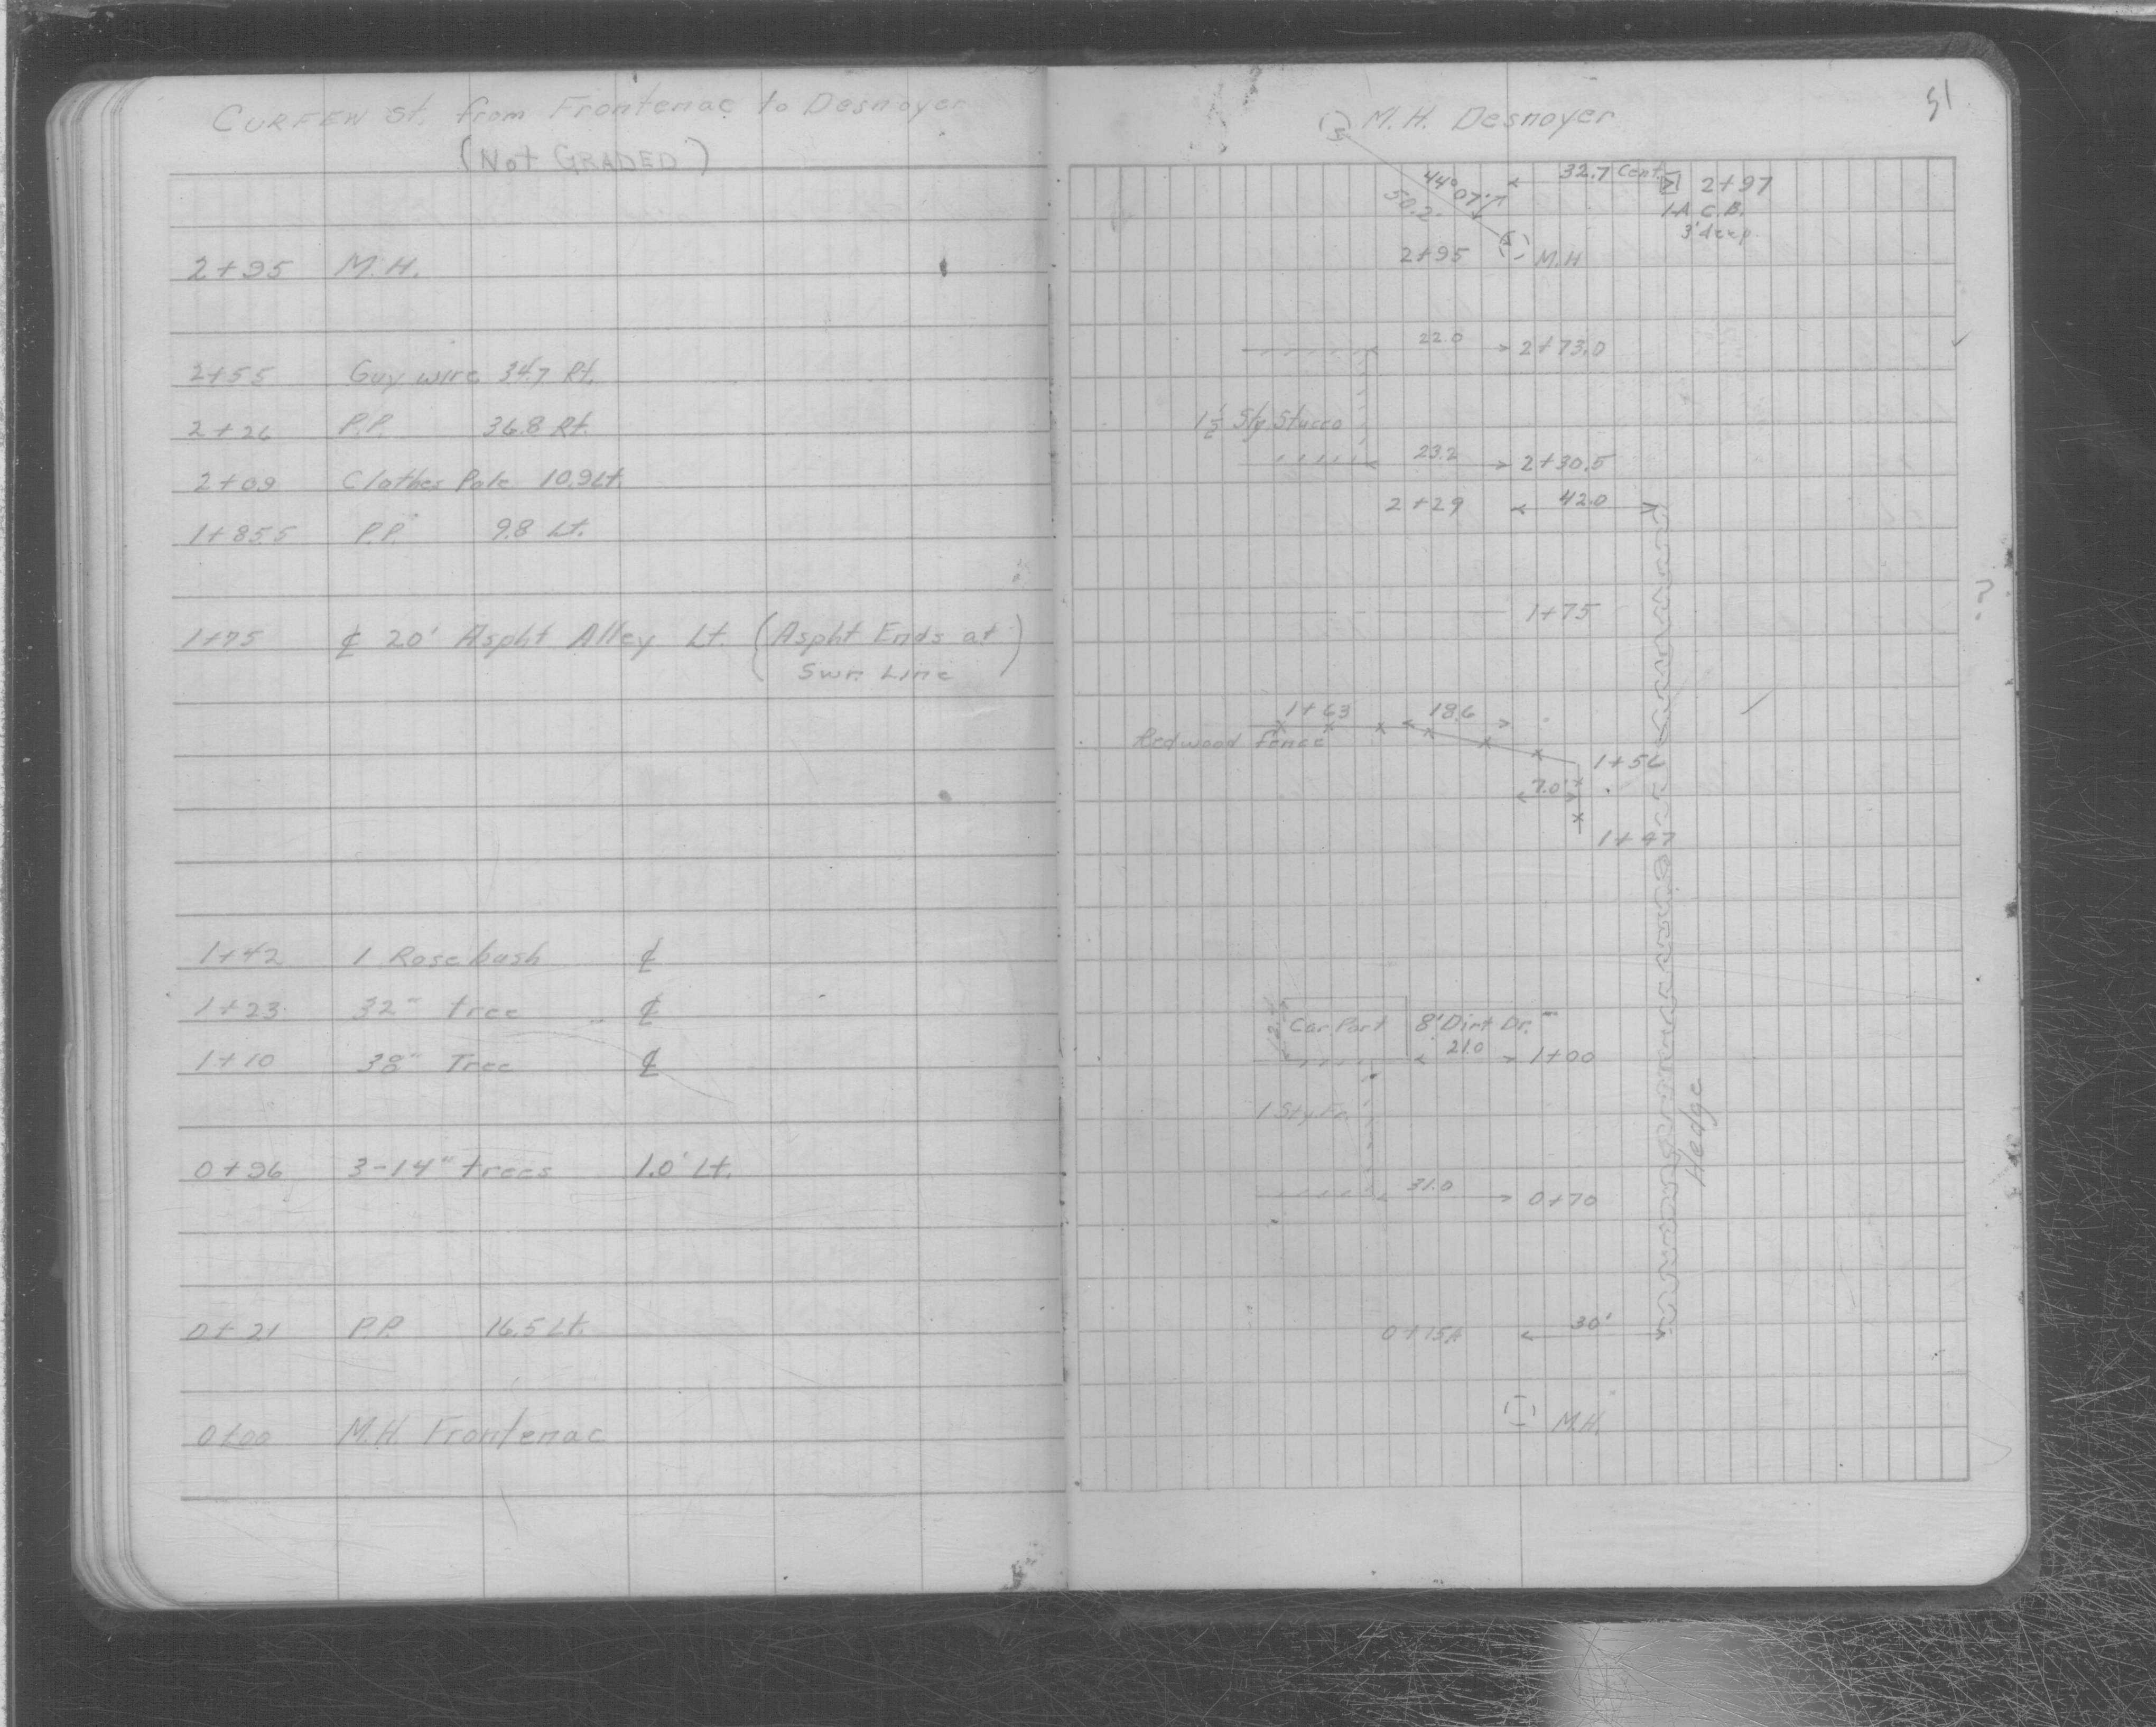 CURFEW St. from Frontenac to Desnoyer
(Not GRADED)
2+95 M.H.
2+55 Guy wire 34.7 Rt.
2+26 P.P. 36.8 Rt.
2+09 Clothes Pole 10.9 Lt.
1+85.5 P.P. 9.8 Lt.
1+75 ⅊ 20' Aspht Alley Lt. (Aspht Ends at
Swr. Line)
1+42 1 Rose bush ⅊
1+23 32" tree ⅊
1+10 38" Tree ⅊
0+96 3-14" trees 1.0' Lt.
0+21 P.P. 16.5 Lt.
0+00 M.H. Frontenac
51
M.H. Desnoyer
44° 07' 32.7 Cent. 2+97
50.2 1-A C.B.
3' deep
2+95 M.H
22.0 2+73.0
1½ Sty. Stucco
23.2 2+30.5
2+29 42.0
1+75
1+63 18.6
Redwood fence
1+56
7.0
1+47
Car Port 8' Dirt Dr.
21.0 1+00
1 Sty. Fr.
Hedge
31.0 0+70
0+15A 30'
M.H.